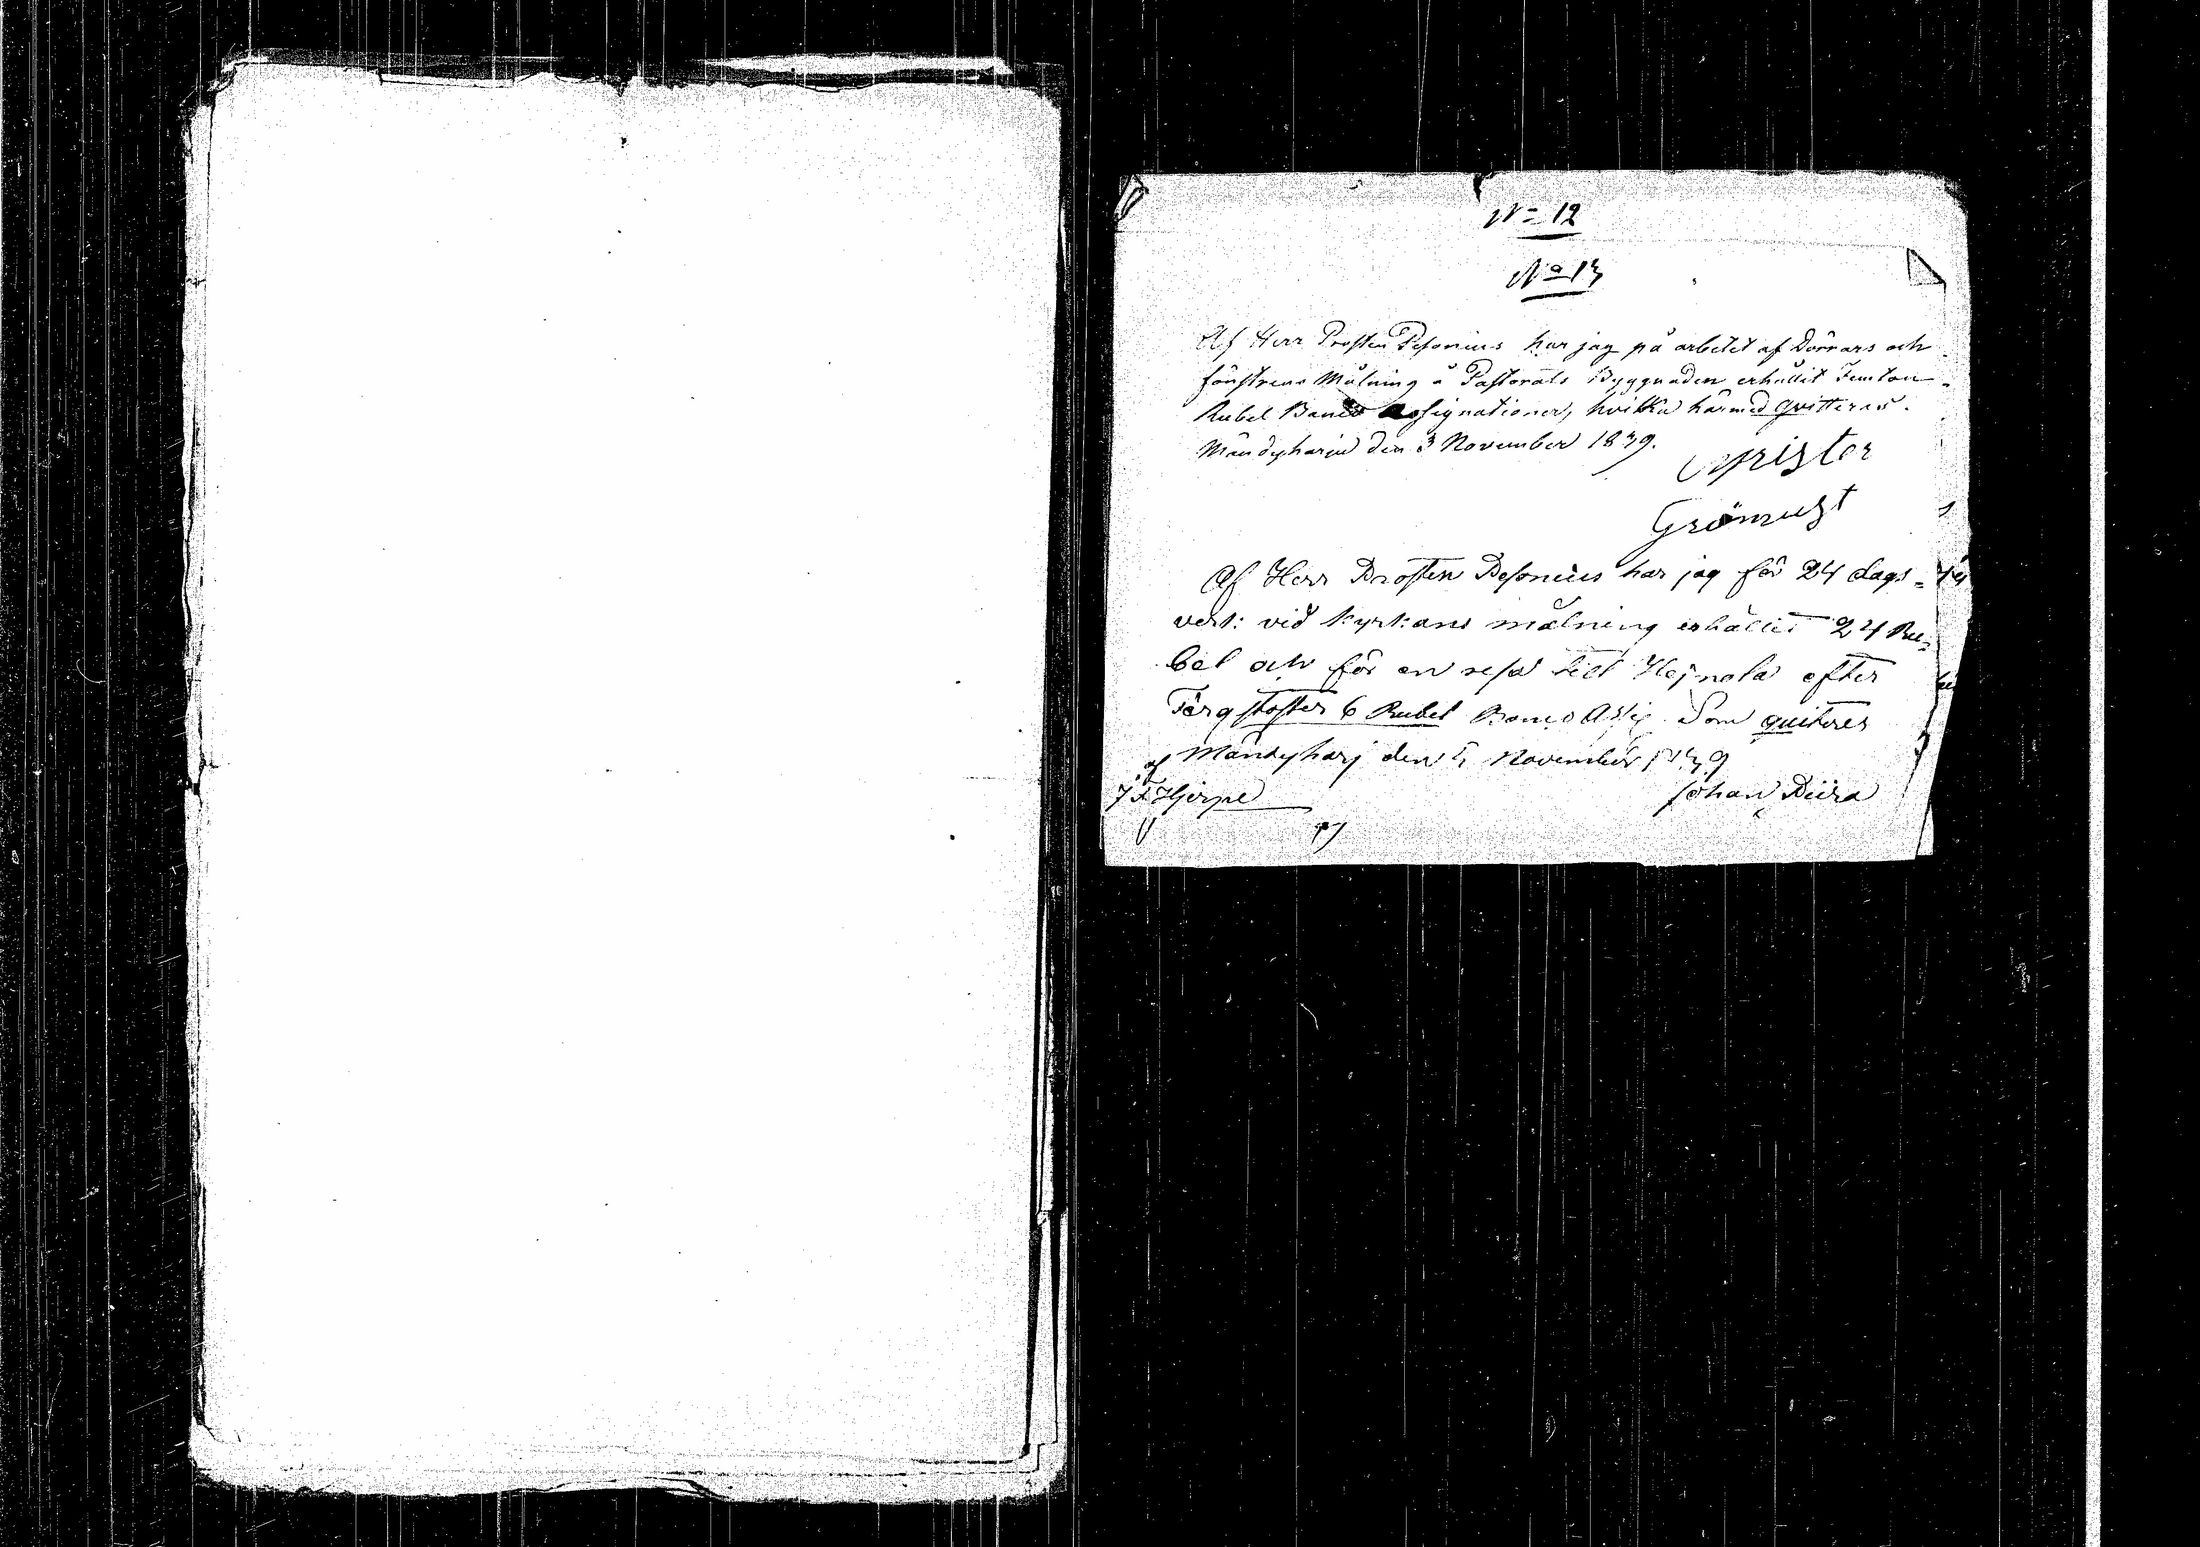 N= 12
No 13
Af Herr Prosten Pesonius har jag på arbetet af Dörrars och
fönstrens Målning å Pastorats Byggnaden erhållit Femton
Rubel Banco Assignationer, hvilka härmed qvitteras.
Mändyharju den 3 November 1839.
Af Herr Prosten Pesonius har jag för 24 dags-
verk vid kyrkans målning erhållit 24 Ru-
bel och för en resa till Hejnola efter
Färgstofter 6 Rubel Banco Assig. Som quiteres
Mändyharj den 5 November 1839
Johan
af